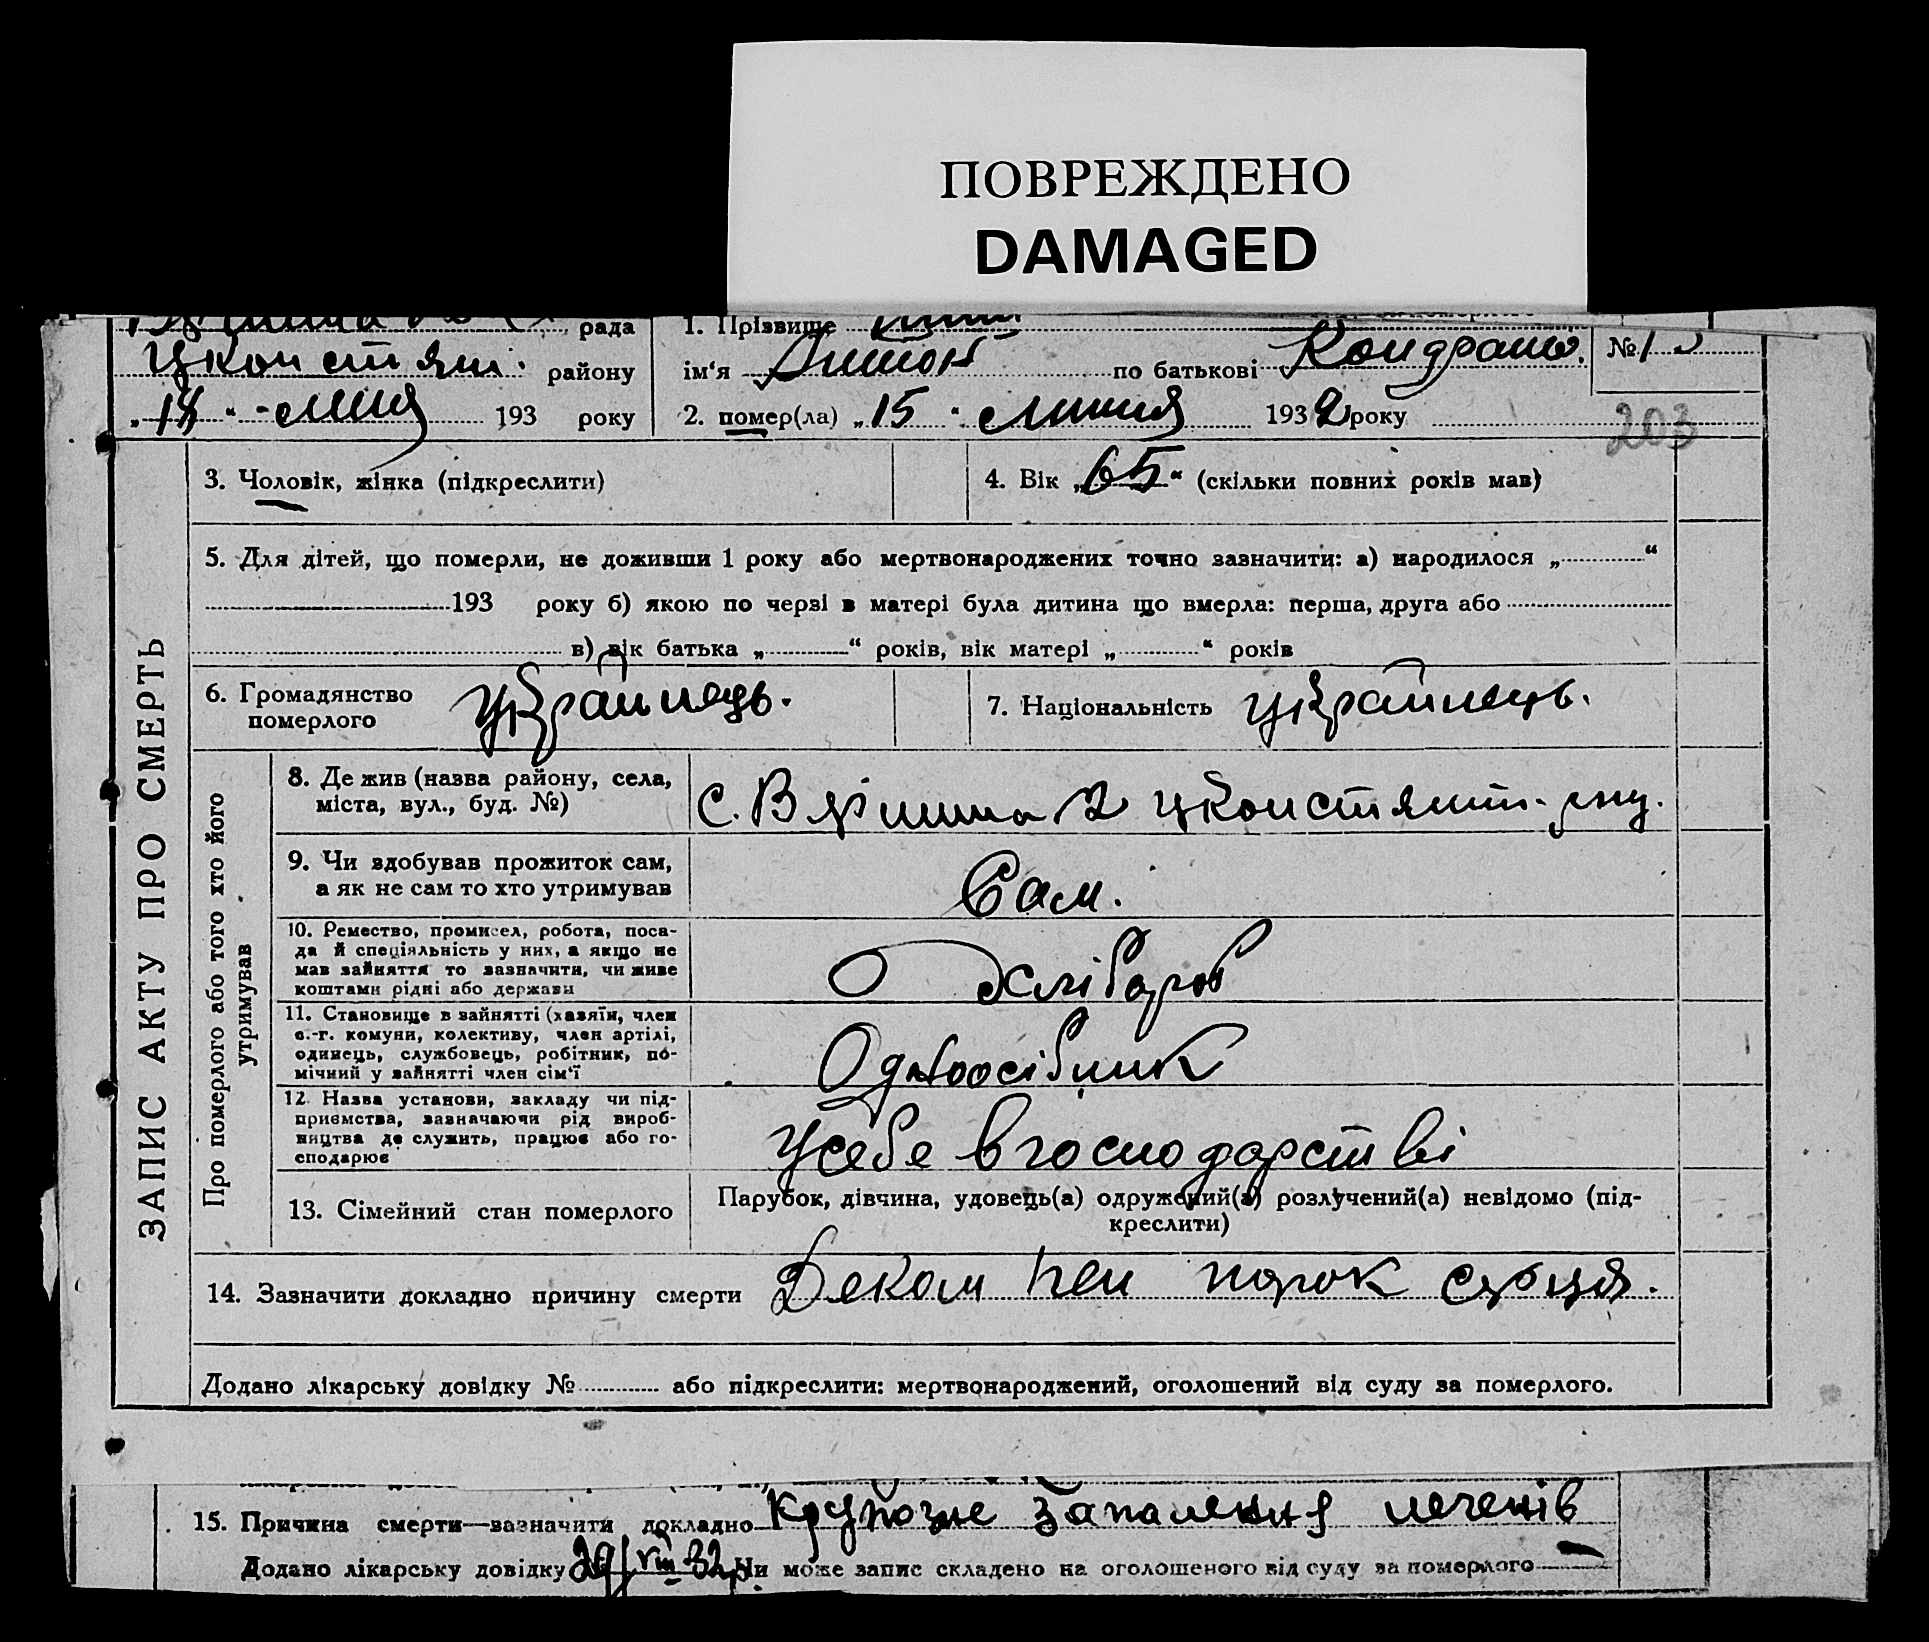 ПОВРЕЖДЕНО
DAMAGED
рада
1. Прізвище
району
ім'я Антон по батькові Кондратов.
№
193 року
2. помер(ла) „15“ липня 1932 року
203
3. Чоловік, жінка (підкреслити)
4. Вік „65“ (скільки повних років мав)
5. Для дітей, що померли, не доживши 1 року або мертвонароджених точно зазначити: а) народилося „ “
193 року б) якою по черзі в матері була дитина що вмерла: перша, друга або
в) вік батька „ “ років, вік матері „ “ років
6. Громадянство померлого
українець.
7. Національність українець.
ЗАПИС АКТУ ПРО СМЕРТЬ
Про померлого або того хто його утримував
8. Де жив (назва району, села,
міста, вул., буд. №)
с.
9. Чи здобував прожиток сам,
а як не сам то хто утримував
Сам.
10. Ремество, промисел, робота, поса-
да й спеціяльність у них, а якщо не
мав зайняття то зазначити, чи живе
коштами рідні або держави
Хлібороб
11. Становище в зайнятті (хазяїн, член
с.-г. комуни, колективу, член артілі,
одинець, службовець, робітник, по-
мічний у зайнятті член сім'ї
Одноосібник
12. Назва установи, закладу чи під-
приємства, зазначаючи рід вироб-
ництва де служить, працює або го-
сподарює
У себе в господарстві
13. Сімейний стан померлого
Парубок, дівчина, удовець(а) одружений(а) розлучений(а) невідомо (під-
креслити)
14. Зазначити докладно причину смерти Деком пен порок серця.
Додано лікарську довідку № або підкреслити: мертвонароджений, оголошений від суду за померлого.
15. Причина смерти—зазначити докладно Крупозне запалення легенів
Додано лікарську довідку 29/VIII 32 Чи може запис складено на оголошеного від суду за померлого